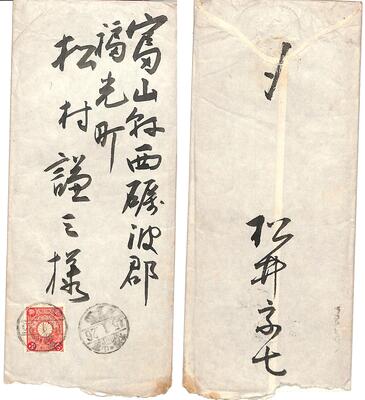 富山县西礪波郡
福光町
松村謙三様
〆
松井京七